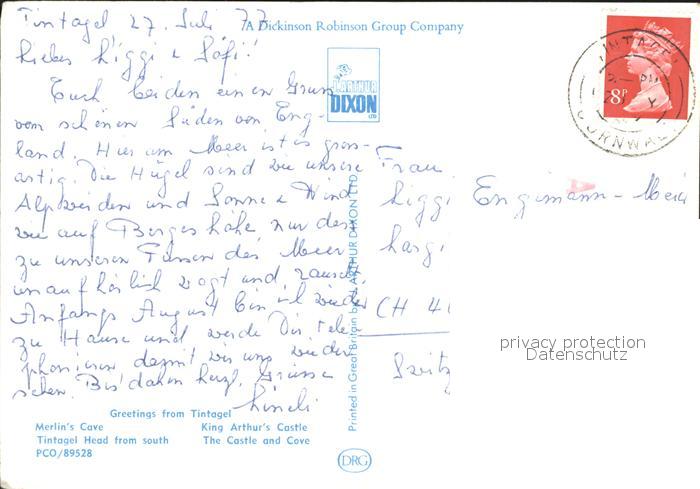 Tintagel 27. Juli 77
A Dickinson Robinson Group Company
Liebes Liggi & Söfi!
Euch beiden einen Gruss
vom schönen Süden von Eng-
land. Hier am Meer ist es gross-
artig. Die Hügel sind wie unsere
Alpweiden und Sonne & Wind
wie auf Bergeshöhe nur dass
zu unseren Füssen das Meer
unaufhörlich wogt und rauscht
Anfangs August bin ich wieder
zu Hause und werde Dir tele-
phonieren damit wir uns wieder
sehen. Bis dahin herzl. Grüsse
J. ARTHUR
DIXON
LTD
8P
TINTAGEL
CORNWALL
Frau
Liggi Engimann-Meie
CH 41
Switz
privacy protection
Datenschutz
Printed in Great Britain by J. ARTHUR DIXON LTD
Greetings from Tintagel
Merlin's Cave King Arthur's Castle
Tintagel Head from south The Castle and Cove
PCO/89528
DRG